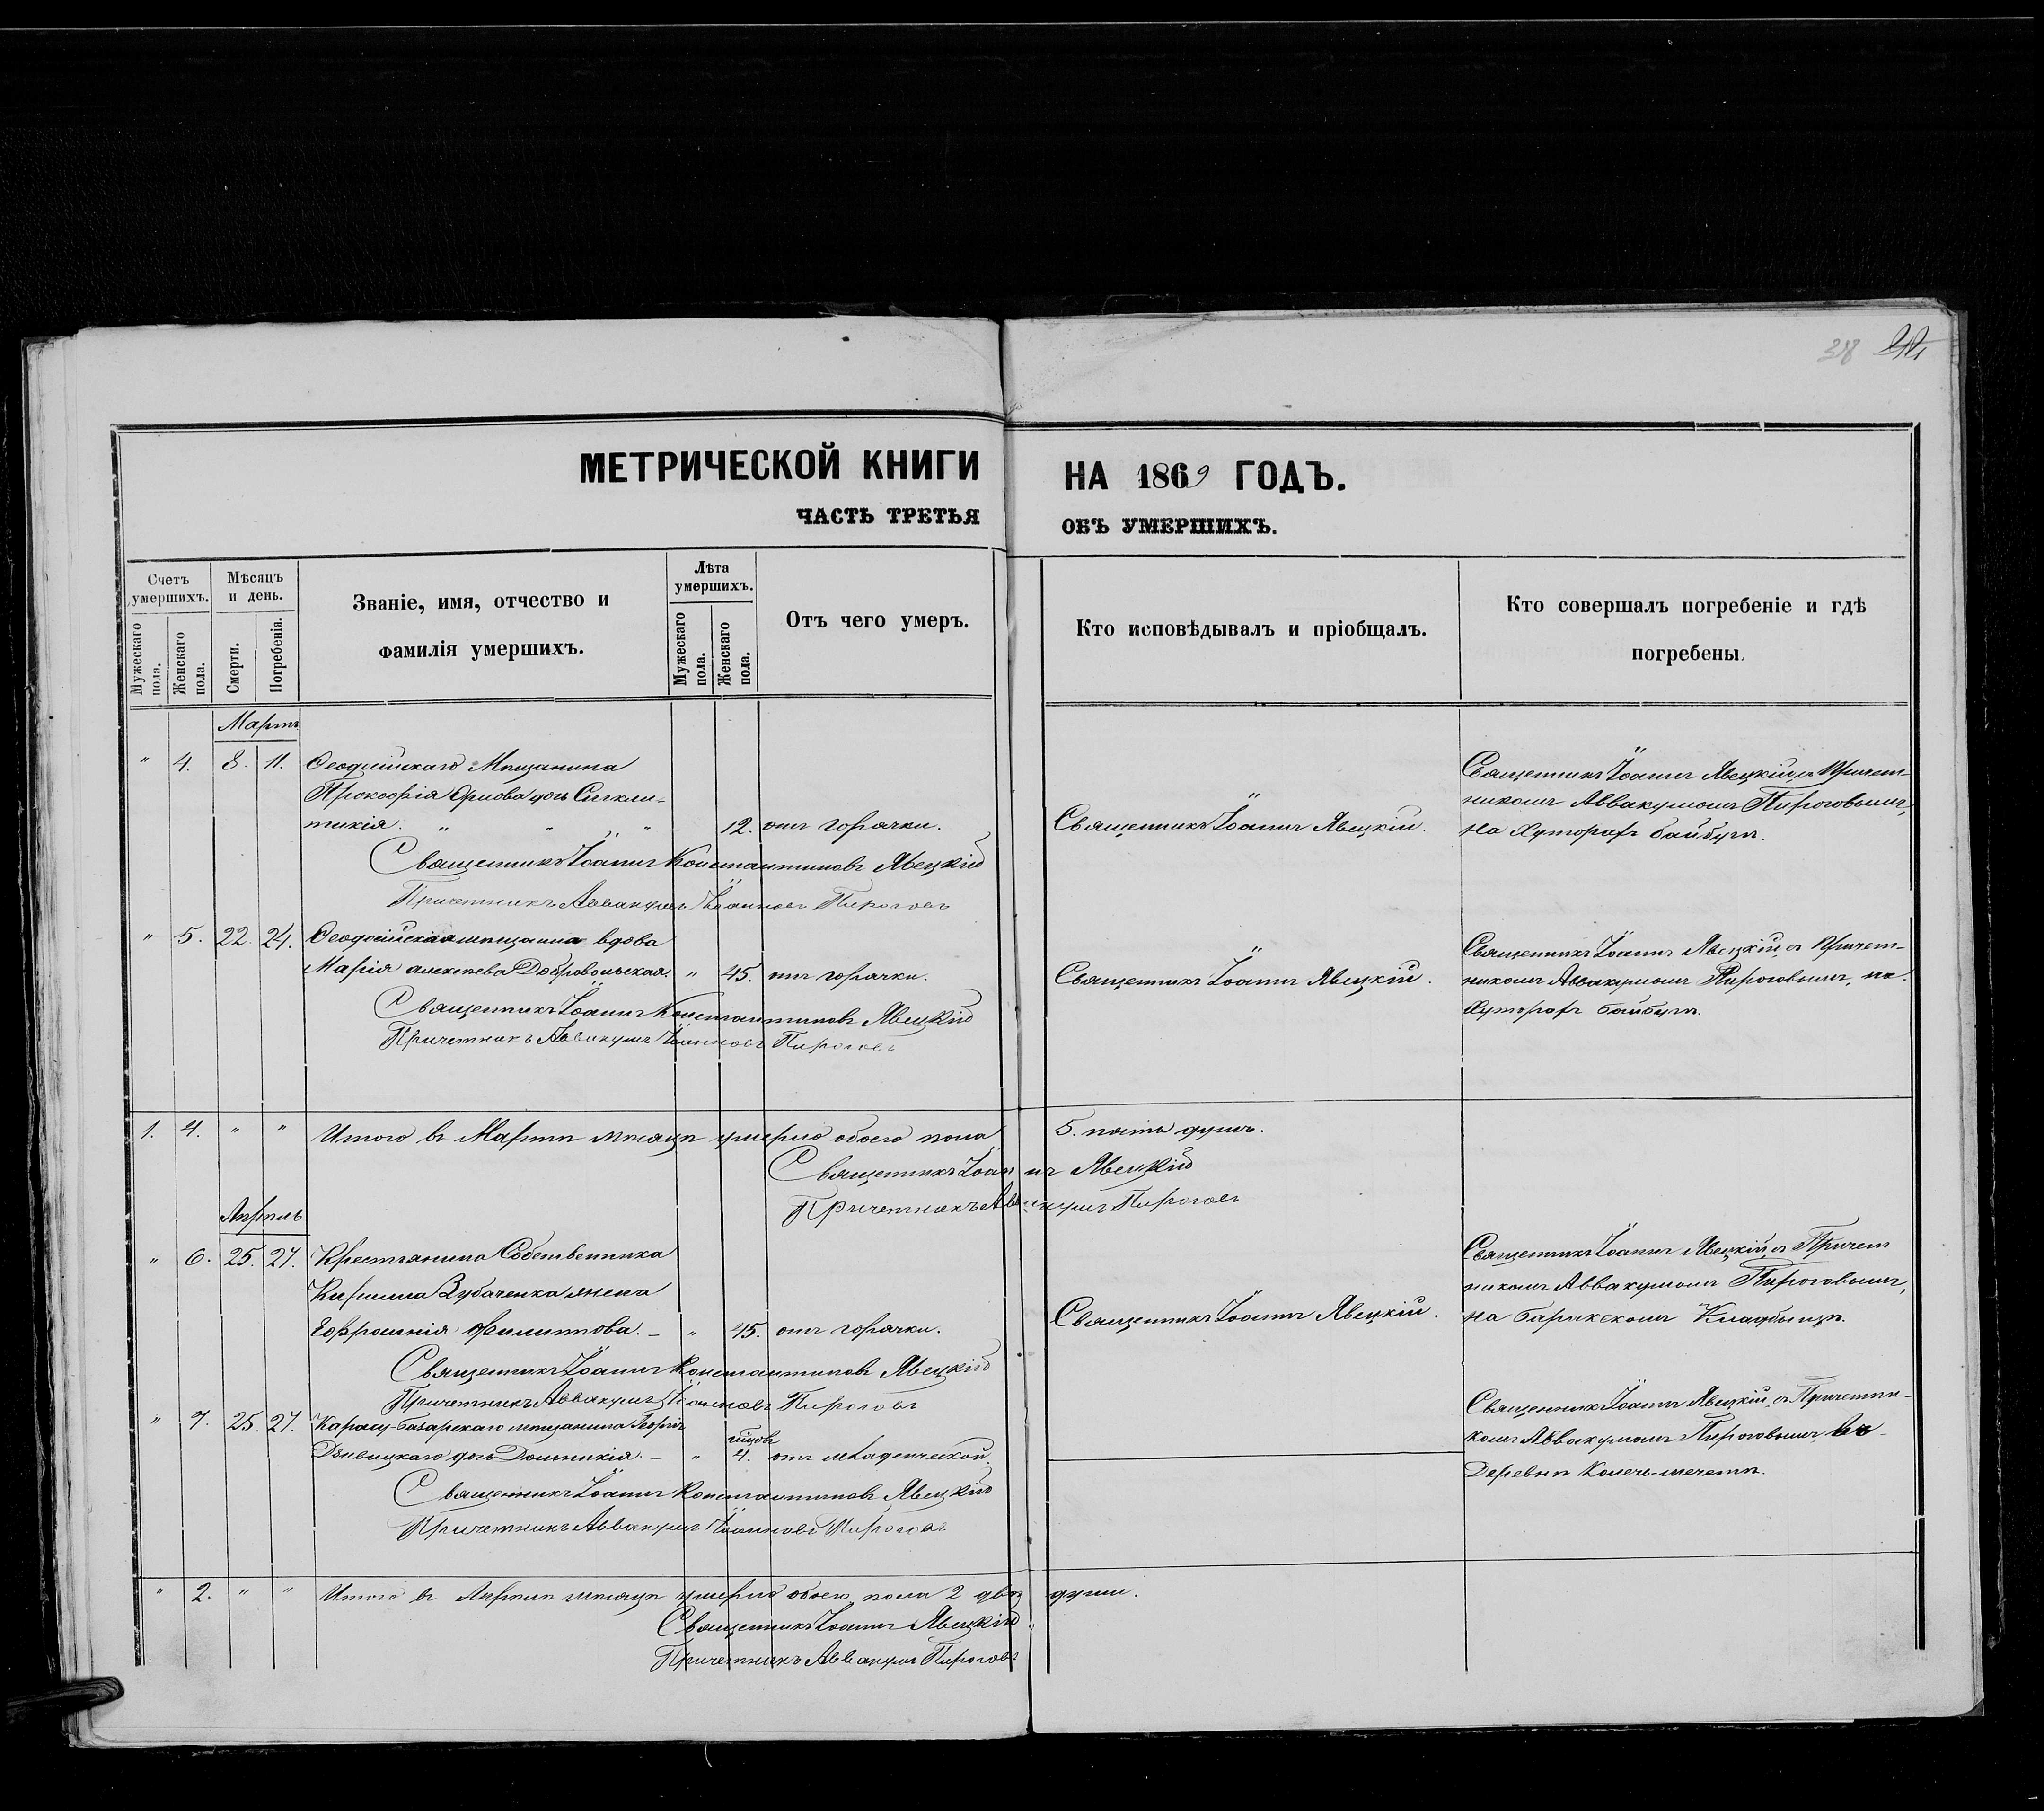 38
МЕТРИЧЕСКОЙ КНИГИ НА 1869 ГОДЪ.
ЧАСТЬ ТРЕТЬЯ ОБЪ УМЕРШИХЪ.
Счетъ умершихъ.
Мужескаго пола.
Женскаго пола.
Мѣсяцъ и день.
Смерти.
Погребенія.
Званіе, имя, отчество и
фамилія умершихъ.
Лѣта умершихъ.
Мужескаго пола.
Женскаго пола.
Отъ чего умеръ.
Кто исповѣдывалъ и пріобщалъ.
Кто совершалъ погребеніе и гдѣ
погребены.
Мартъ
" 4. 8. 11. Ѳеодосійскаго Мѣщанина
Прокофія Орлова дочь Сигкли-
тикія. " " " " 12. отъ горячки.
Священникъ Іоаннъ Явецкій.
Священникъ Іоаннъ Явецкій съ Причет-
никомъ Аввакумомъ Пироговымъ,
на Хуторахъ байбугъ.
Священникъ Іоаннъ Константиновъ Явецкій
Причетникъ Аввакумъ Іоанновъ Пироговъ
" 5. 22. 24. Ѳеодосійская мѣщанка вдова
Марія алексѣева Добровольская. " 45. отъ горячки.
Священникъ Іоаннъ Явецкій.
Священникъ Іоаннъ Явецкій, съ Причет-
никомъ Аввакумомъ Пироговымъ, на
Хуторахъ байбугъ.
Священникъ Іоаннъ Константиновъ Явецкій
Причетникъ Аввакумъ Іоанновъ Пироговъ
1. 4. " " Итого въ Мартѣ мѣсяцѣ умерло обоего пола 5. пять душъ.
Священникъ Іоаннъ Явецкій
Причетникъ Аввакумъ Пироговъ
Апрѣль
" 6. 25. 27. Крестьянина Собственника
Кирилла Зубаченка жена
Ефросинія Филиппова. – " 45. отъ горячки.
Священникъ Іоаннъ Явецкій.
Священникъ Іоаннъ Явецкій, съ Причет
никомъ Аввакумомъ Пироговымъ,
на Кладбищѣ.
Священникъ Іоаннъ Константиновъ Явецкій
Причетникъ Аввакумъ Іоанновъ Пироговъ
" 7. 25. 27. Карасу-базарскаго мѣщанина Георгія
дочь Домникія. – " 4. отъ младенческой.
Священникъ Іоаннъ Явецкій съ Причетни-
комъ Аввакумомъ Пироговымъ въ
Деревнѣ
Священникъ Іоаннъ Константиновъ Явецкій
Причетникъ Аввакумъ Іоанновъ Пироговъ
" 2. " " Итого въ Апрѣлѣ мѣсяцѣ умерло обоего пола 2 двѣ души.
Священникъ Іоаннъ Явецкій.
Причетникъ Аввакумъ Пироговъ